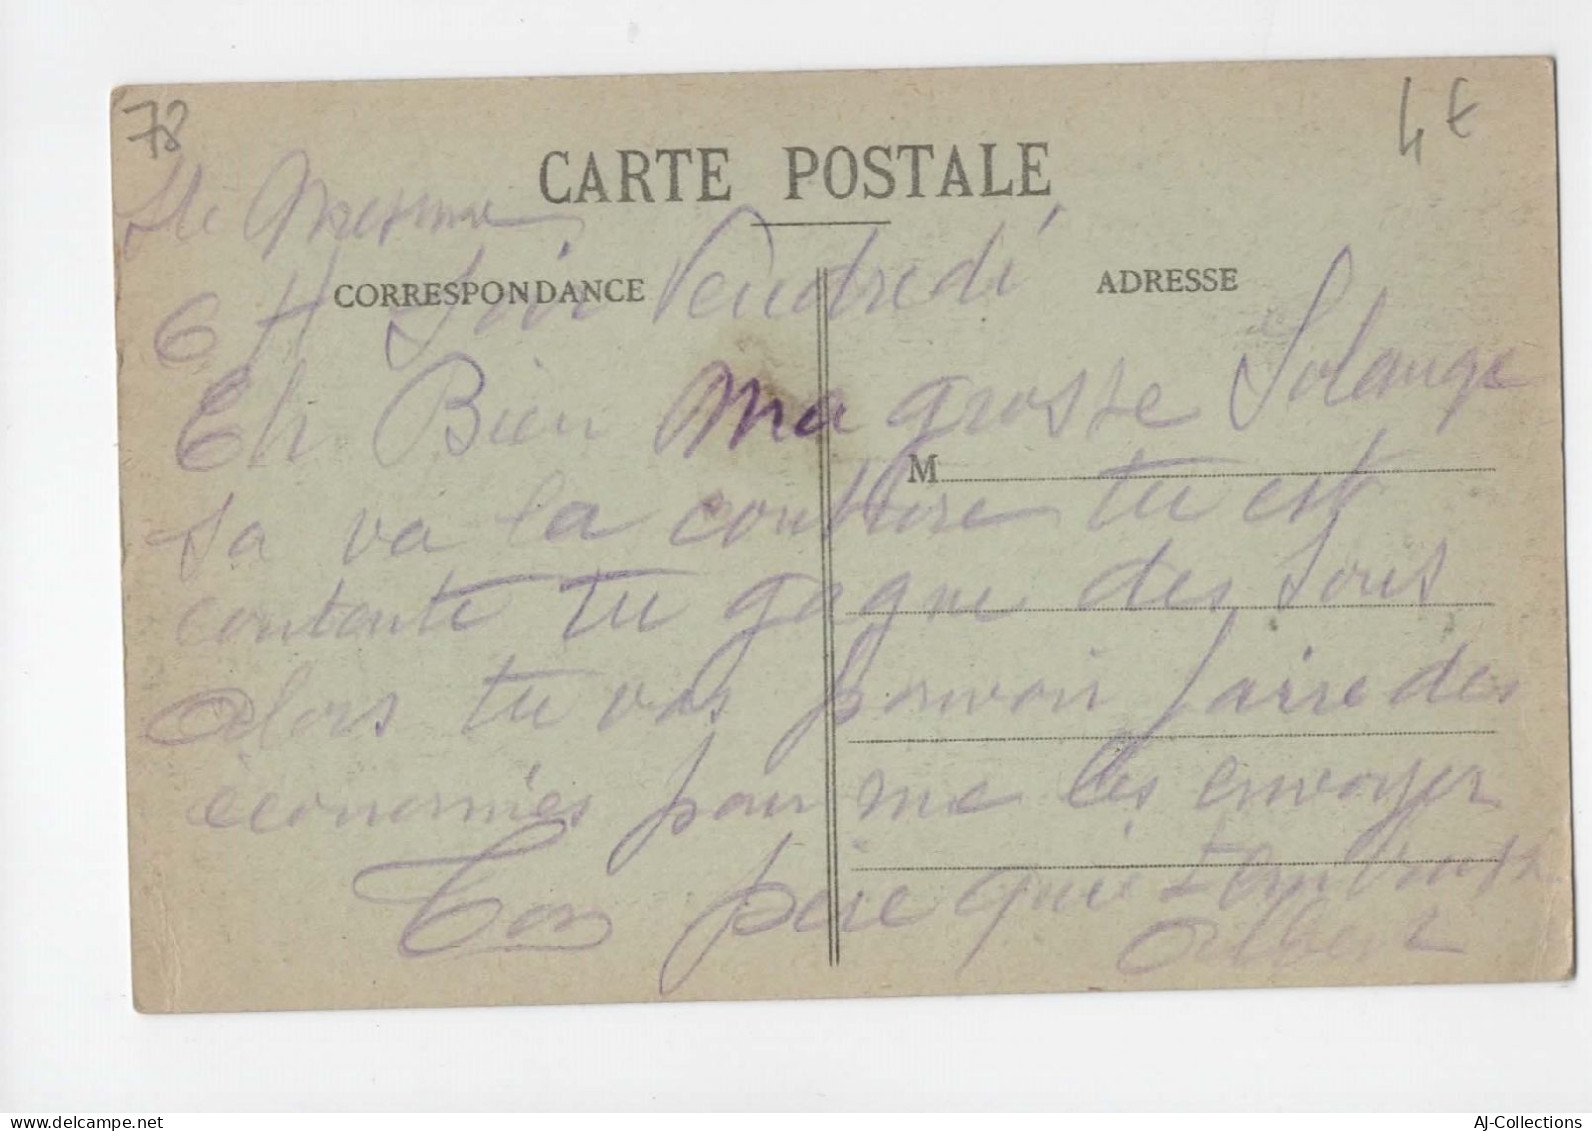 78
4€
CARTE POSTALE
Ste Mesme
6 H Soir Vendredi
CORRESPONDANCE
ADRESSE
Eh Bien Ma grosse Solange
M
sa va la couture tu est
contente tu gagne des sous
alors tu vas pouvoir faire des
économies pour me les envoyer
Ton père qui t'embrasse
Albert
AJ-Collections